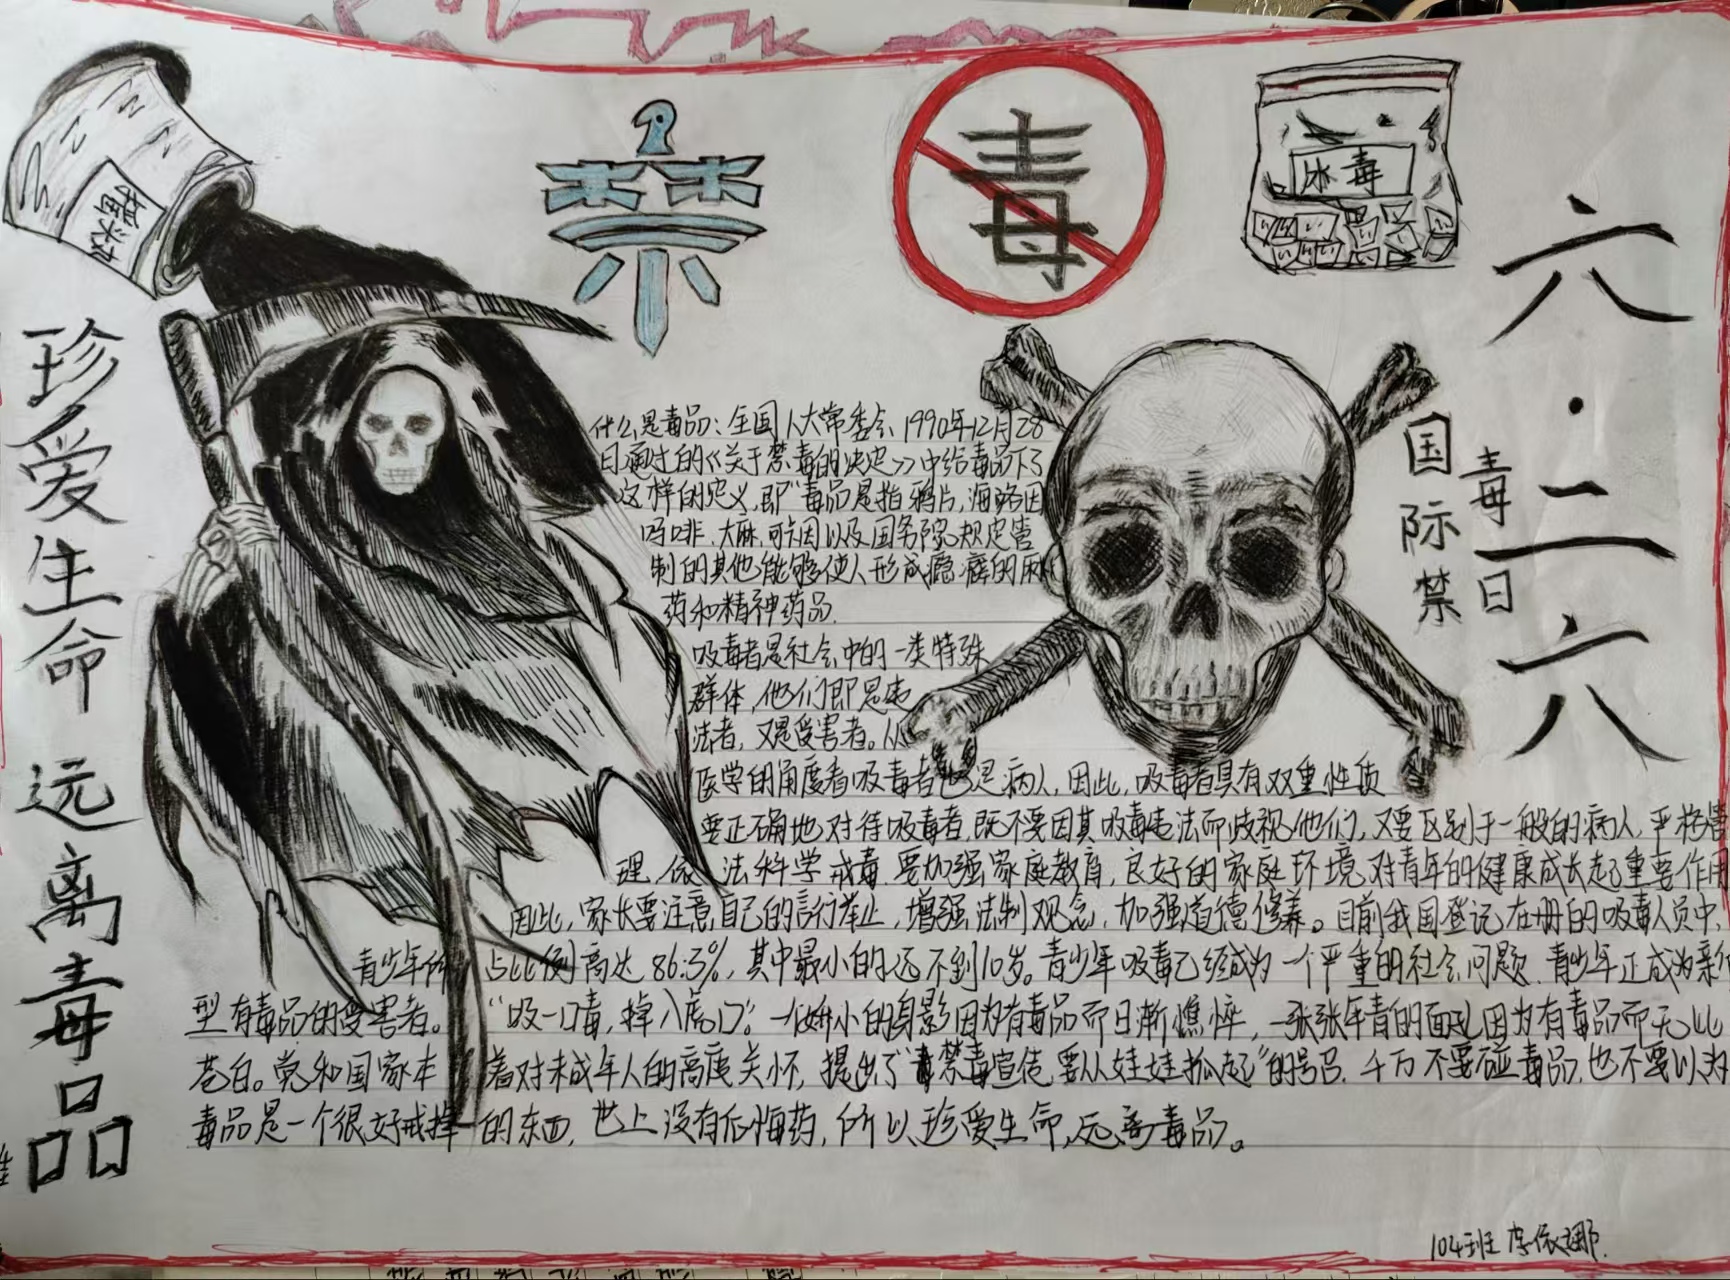 罂粟
禁
毒
冰毒
六·二六
国际禁
毒日
珍爱生命 远离毒品
什么是毒品:全国人大常委会1990年12月28
日通过的《关于禁毒的决定》中给毒品下了
这样的定义,即"毒品是指鸦片,海洛因
吗啡.大麻,可卡因以及国务院规定管
制的其他能够使人形成瘾癖的麻
药和精神药品.
吸毒者是社会中的一类特殊
群体,他们即是违
法者,又是受害者。从
医学的角度看吸毒者也是病人,因此,吸毒者具有双重性质
要正确地对待吸毒者,既不要因其吸毒违法而歧视他们,又要区别于一般的病人,严格管
理,依法科学戒毒.要加强家庭教育,良好的家庭环境对青年的健康成长起重要作用
因此,家长要注意自己的言行举止,增强法制观念,加强道德修养。目前我国登记在册的吸毒人员中,
青少年所占比例高达86.3%,其中最小的还不到10岁。青少年吸毒已经成为一个严重的社会问题.青少年正成为新
型有毒品的受害者。"吸一口毒,掉入虎口"。一个娇小的身影因为有毒品而日渐憔悴,一张张年青的面孔因为有毒品而无比
苍白。党和国家本着对未成年人的高度关怀,提出了"禁毒宣传要从娃娃抓起"的号召.千万不要碰毒品,也不要以为
毒品是一个很好戒掉的东西,世上没有后悔药,所以,珍爱生命,远离毒品。
104班 李依娜